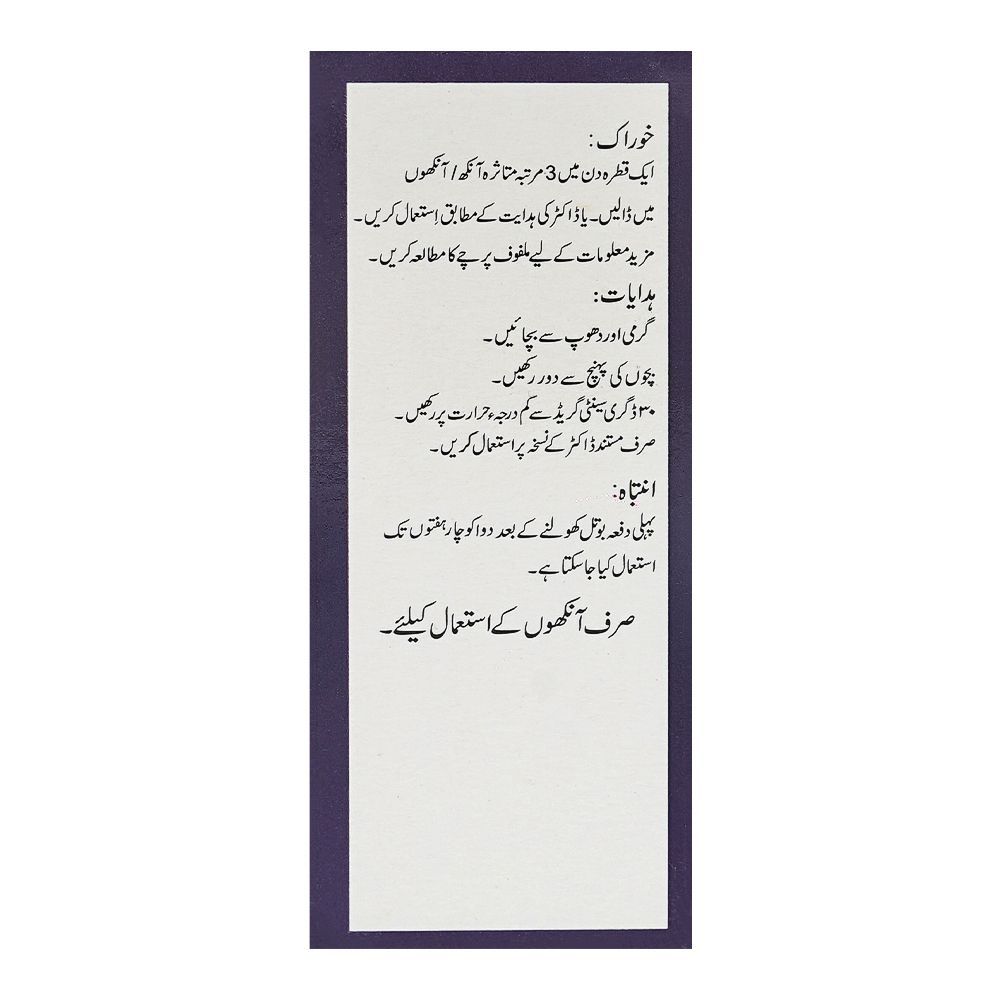 خوراک:
ایک قطرہ دن میں 3 مرتبہ متاثرہ آنکھ / آنکھوں
میں ڈالیں۔ یا ڈاکٹر کی ہدایت کے مطابق اِستعمال کریں۔
مزید معلومات کے لیے ملفوف پرچے کا مطالعہ کریں۔
ہدایات:
گرمی اور دھوپ سے بچائیں۔
بچوں کی پہنچ سے دور رکھیں۔
۳۰ ڈگری سینٹی گریڈ سے کم درجہء حرارت پر رکھیں۔
صرف مستند ڈاکٹر کے نسخہ پر استعمال کریں۔
انتباہ:
پہلی دفعہ بوتل کھولنے کے بعد دوا کو چار ہفتوں تک
استعمال کیا جا سکتا ہے۔
صرف آنکھوں کے استعمال کیلئے۔